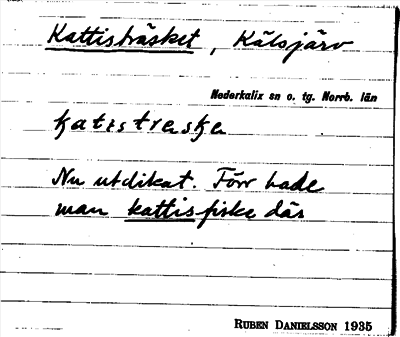 Kattisträsket, Kälsjärv
Nederkalix sn o. tg. Norrb. län
katistreske
Nu utdikat. Förr hade
man kattisfiske där
RUBEN DANIELSSON 1935